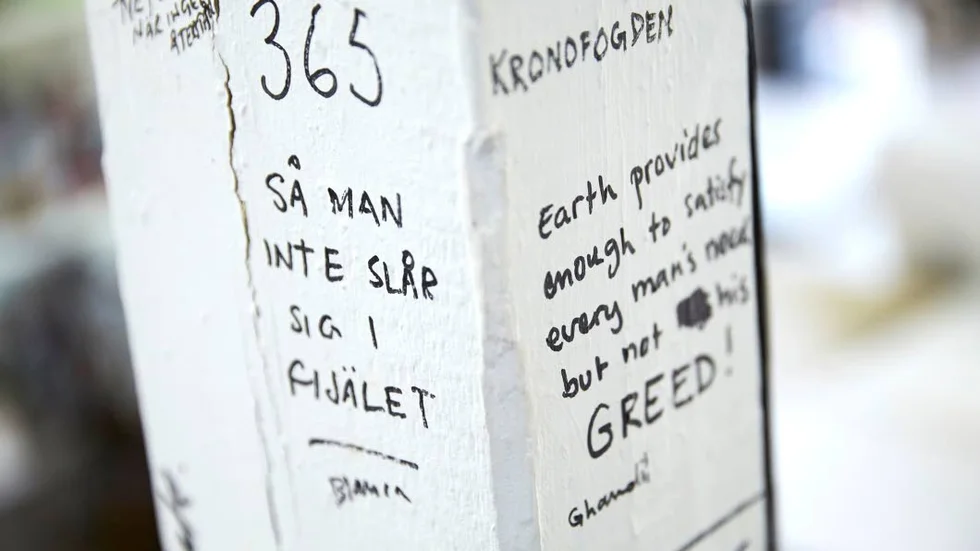 NÄRINGEN
ÅTERTAR
365
SÅ MAN
INTE SLÅR
SIG I
FIJÄLET
KRONOFOGDEN
Earth provides
enough to satisfy
every man's need
but not his
GREED!
Ghandi